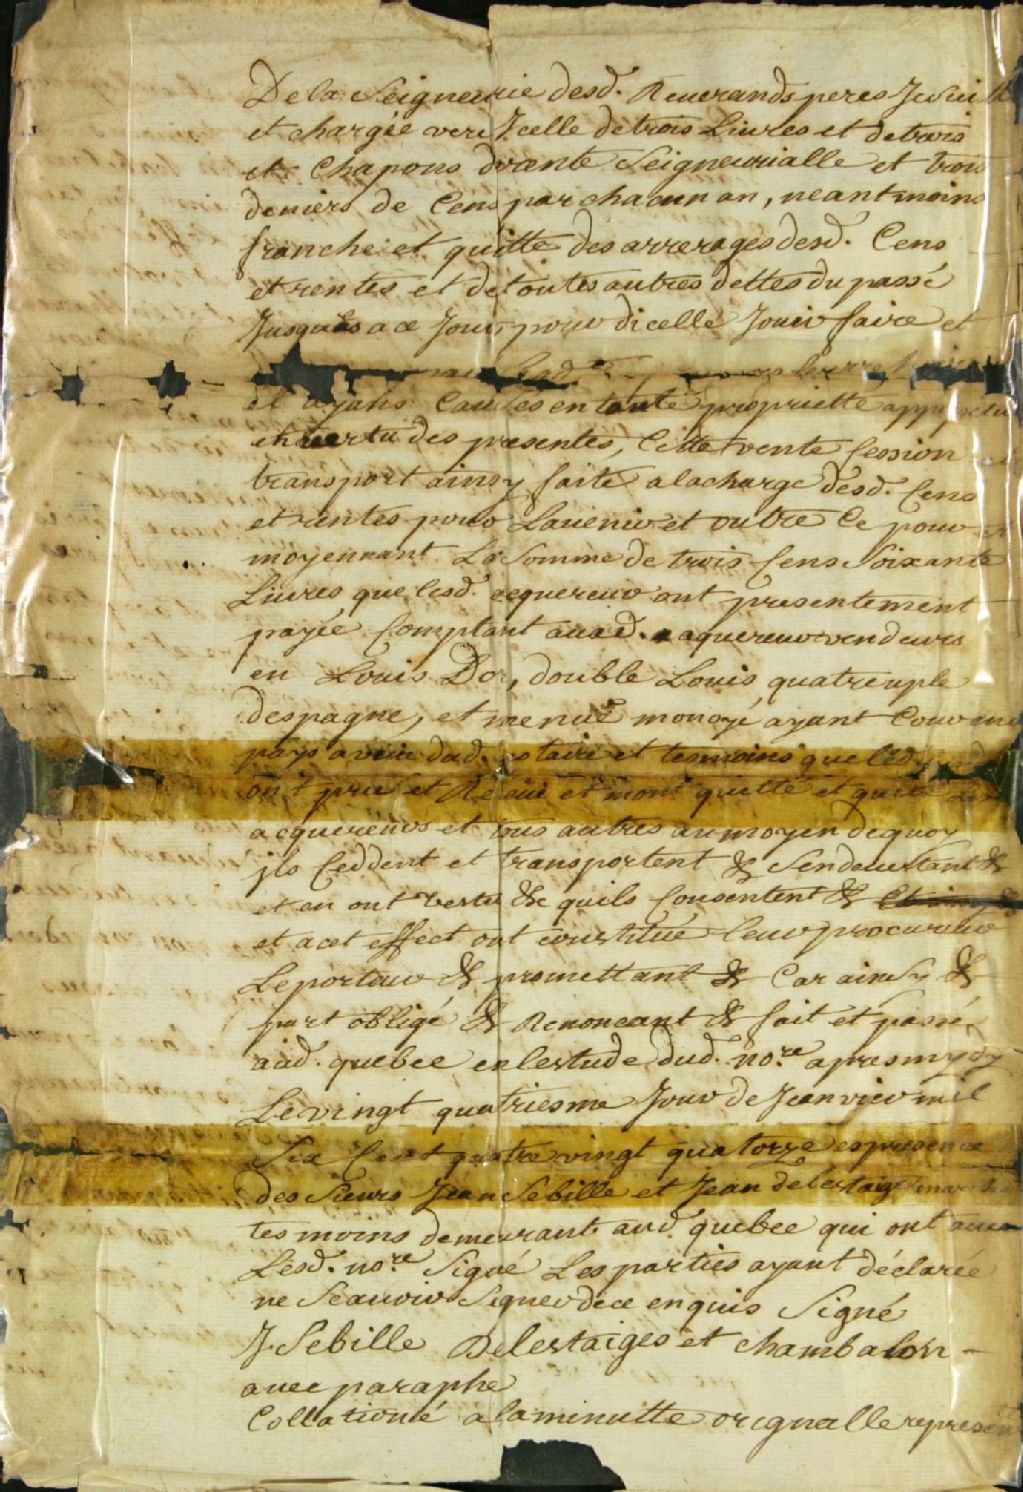 De la Seigneurie desd. Reuerands peres Jesuitt
et chargée vers Jcelle de trois Liures et de trois
et Chapons de rente Seigneurialle et trois
deniers de Cens par chacun an, neantmoins
franche et quitte des arrerages desd. Cens
et rentes et de toutes autres dettes du passé
Jusques a ce Jour, pour dicelle Jouir faire et
et ayans Causes en toute proprietté
en vertu des presentes, Cette vente Cession
transport ainsy faite a la charge desd. Cens
et rentes pour Lauenir et outre Ce pour
moyennant La Somme de trois Cens Soixante
Liures que lesd. acquereurs ont presentement
payée Comptant ausd. aquereurs vendeurs
en Louis Dor, double Louis quatreuple
despagne, et menue monoyé ayant Cours en ce
pays a veue dud. notaire et tesmoins que lesd.
ont pris et Receu et mont quitté et quitte
acquereurs et tous autres au moyen de quoy
jls Ceddent et transportent & Sendeuestant &
et en ont vestu & quils Consentent &
et a cet effect ont constitué leur procureur
Le porteur & promettant & Car ainsy &
part obligé & Renoncant & fait et passé
aud. quebec en lestude dud. no.re apres mydy
Le vingt quatriesme Jour de Jeanvier mil
Six Cent quatre vingt quatorze es presence
des Sieurs Jean Sebille et Jean de Lestaige
tesmoins demeurant aud. quebec qui ont auec
Lesd. no.re Signé Les parties ayant déclarée
ne Scauoir Signer de ce enquis Signé
J. Sebille Delestaiges et Chambalon
auec paraphe
Collationé a la minutte orignalle represen